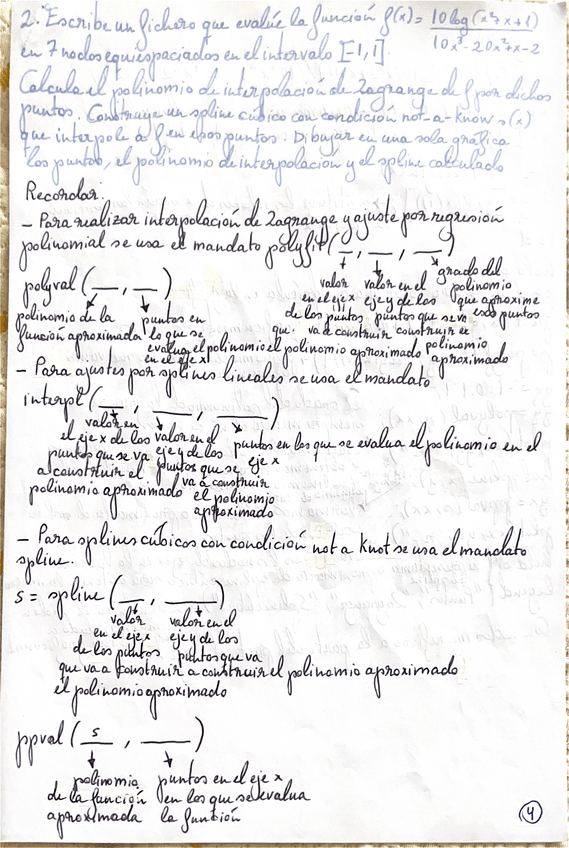 2. Escribe un fichero que evalúe la función f(x) = 10 log (x²+x+1) / 10x³-20x²+x-2
en 7 nodos equiespaciados en el intervalo [-1,1].
Calcula el polinomio de interpolación de Lagrange de f por dichos
puntos. Construye un spline cúbico con condición not-a-know s(x)
que interpole a f en esos puntos. Dibujar en una sola gráfica
los puntos, el polinomio de interpolación y el spline calculado
Recordar:
- Para realizar interpolación de Lagrange y ajuste por regresión
polinomial se usa el mandato polyfit(__, __, __)
valor en el eje x de los puntos que va a construir el polinomio aproximado
valor en el eje y de los puntos que se va construir el polinomio aproximado
grado del polinomio que aproxime esos puntos
polyval (__, __)
polinomio de la función aproximada
puntos en lo que se evalua el polinomio en el eje x
- Para ajustes por splines lineales se usa el mandato
interpl (__, __, __)
valor en el eje x de los puntos que se va a construir el polinomio aproximado
valor en el eje y de los puntos que se va a construir el polinomio aproximado
puntos en los que se evalua el polinomio en el eje x
- Para splines cúbicos con condición not a Knot se usa el mandato
spline.
s = spline (__, __)
valor en el eje x de los puntos que va a construir el polinomio aproximado
valor en el eje y de los puntos que va a construir el polinomio aproximado
ppval (s, __)
polinomio de la función aproximada
puntos en el eje x en los que se evalua la función
4